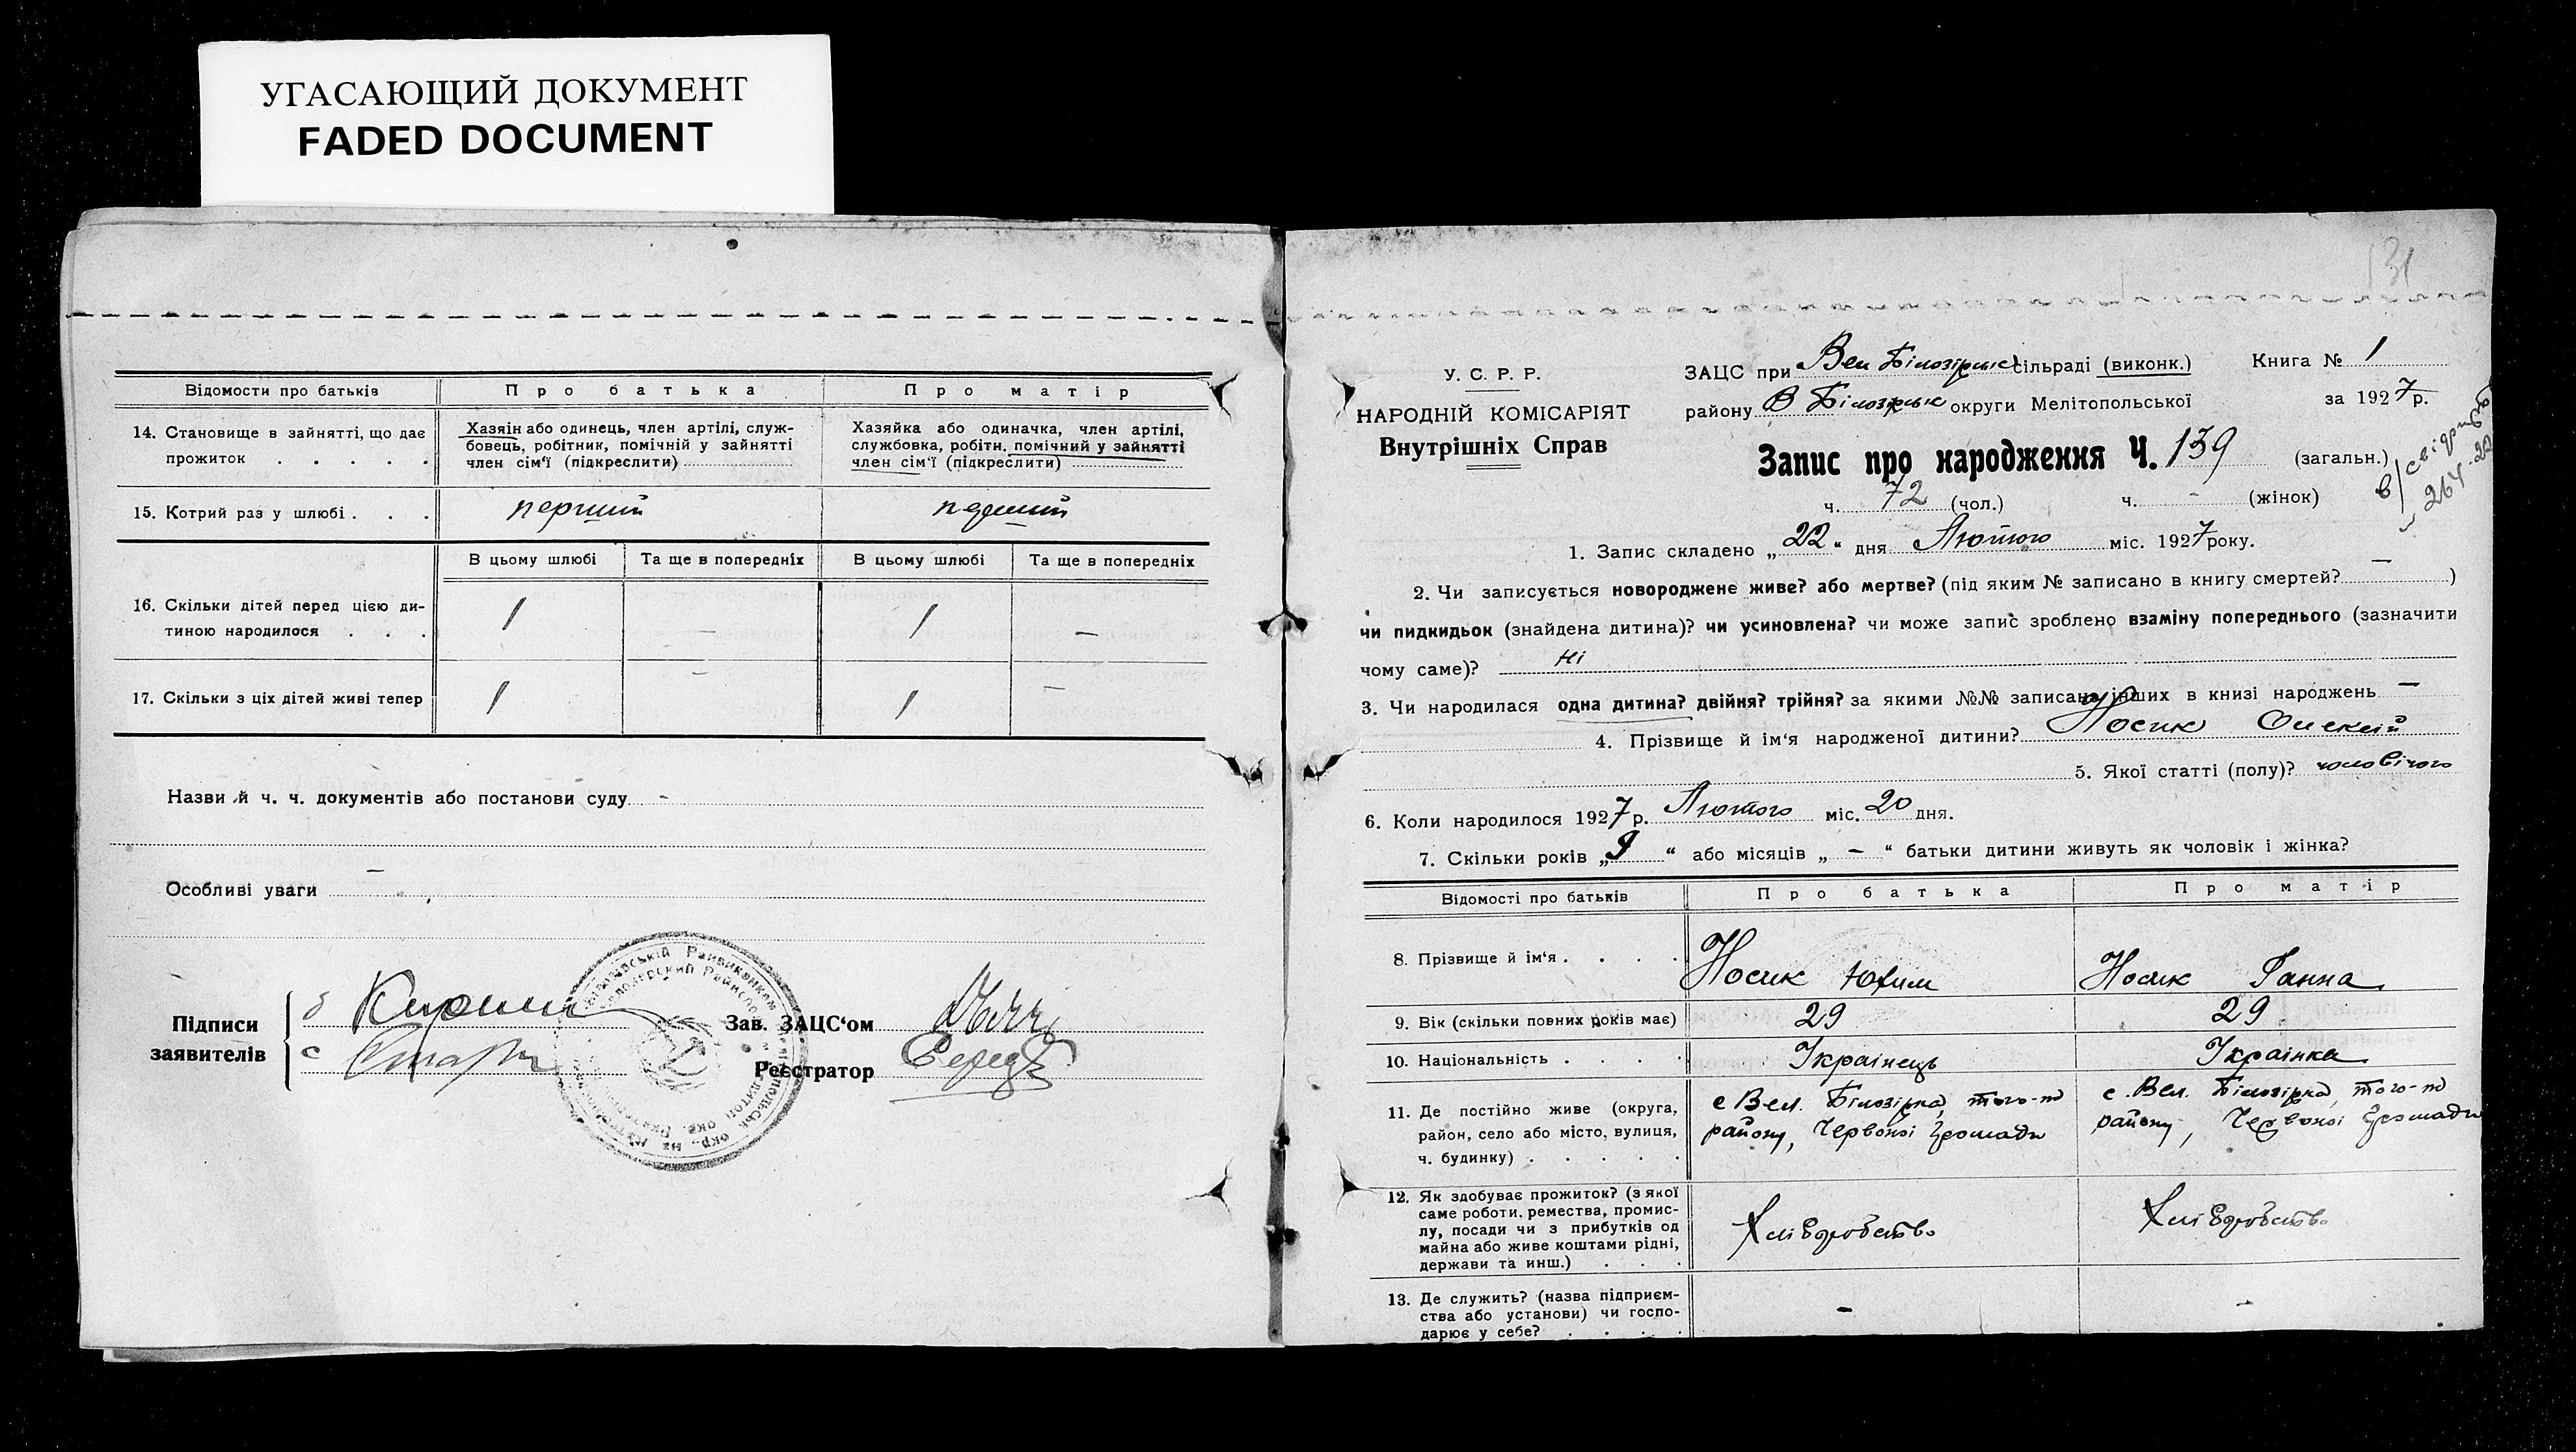 УГАСАЮЩИЙ ДОКУМЕНТ
FADED DOCUMENT
Відомости про батьків
Про батька
Про матір
14. Становище в зайнятті, що дає
прожиток . . . . .
Хазяін або одинець, член артілі, служ-
бовець, робітник, помічній у зайнятті
член сім'ї (підкреслити)
Хазяйка або одиначка, член артілі,
службовка, робітн. помічний у зайнятті
член сім'ї (підкреслити)
15. Котрий раз у шлюбі . . .
перший
перший
В цьому шлюбі
Та ще в попередніх
В цьому шлюбі
Та ще в попередніх
16. Скільки дітей перед цією ди-
тиною народилося . . .
1 — 1 —
17. Скільки з ціх дітей живі тепер
1 — 1 —
Назви й ч. ч. документів або постанови суду -
Особливі уваги —
Підписи
заявителів
Зав. ЗАЦС'ом
Реєстратор
131
У. С. Р. Р.
НАРОДНІЙ КОМІСАРІЯТ
Внутрішніх Справ
ЗАЦС при Вел Білозірськ сільраді (виконк.)
Книга № 1
району В Білозірськ округи Мелітопольської
за 1927 р.
Запис про народження Ч. 139 (загальн.)
ч. 72 (чол.) ч. - (жінок)
1. Запис складено „22“ дня Лютого міс. 1927 року.
2. Чи записується новороджене живе? або мертве? (під яким № записано в книгу смертей? — )
чи пидкидьок (знайдена дитина)? чи усиновлена? чи може запис зроблено взаміну попереднього (зазначити
чому саме)? ні
3. Чи народилася одна дитина? двійня? трійня? за якими №№ записано інших в книзі народжень —
4. Прізвище й ім'я народженої дитини? Носик Олексій
5. Якої статті (полу)? чоловічого
6. Коли народилося 1927 р. Лютого міс. 20 дня.
7. Скільки років „9“ або місяців „ — “ батьки дитини живуть як чоловік і жінка?
Відомості про батьків
Про батька
Про матір
8. Прізвище й ім'я . . . .
Носик Юхим
Носик Ганна
9. Вік (скільки повних років має)
29
29
10. Національність . . . .
Українець
Українка
11. Де постійно живе (округа,
район, село або місто, вулиця,
ч. будинку) . . . . .
с Вел. Білозірка, того-ж
району, Червоної Громади
с. Вел. Білозірка, того-ж
району, Червоної Громади
12. Як здобуває прожиток? (з якої
саме роботи, ремества, промис-
лу, посади чи з прибутків од
майна або живе коштами рідні,
держави та инш.) . . .
Хліборобство
Хліборобство
13. Де служить? (назва підприєм-
ства або установи) чи госпо-
дарює у себе? . . . .
-
-